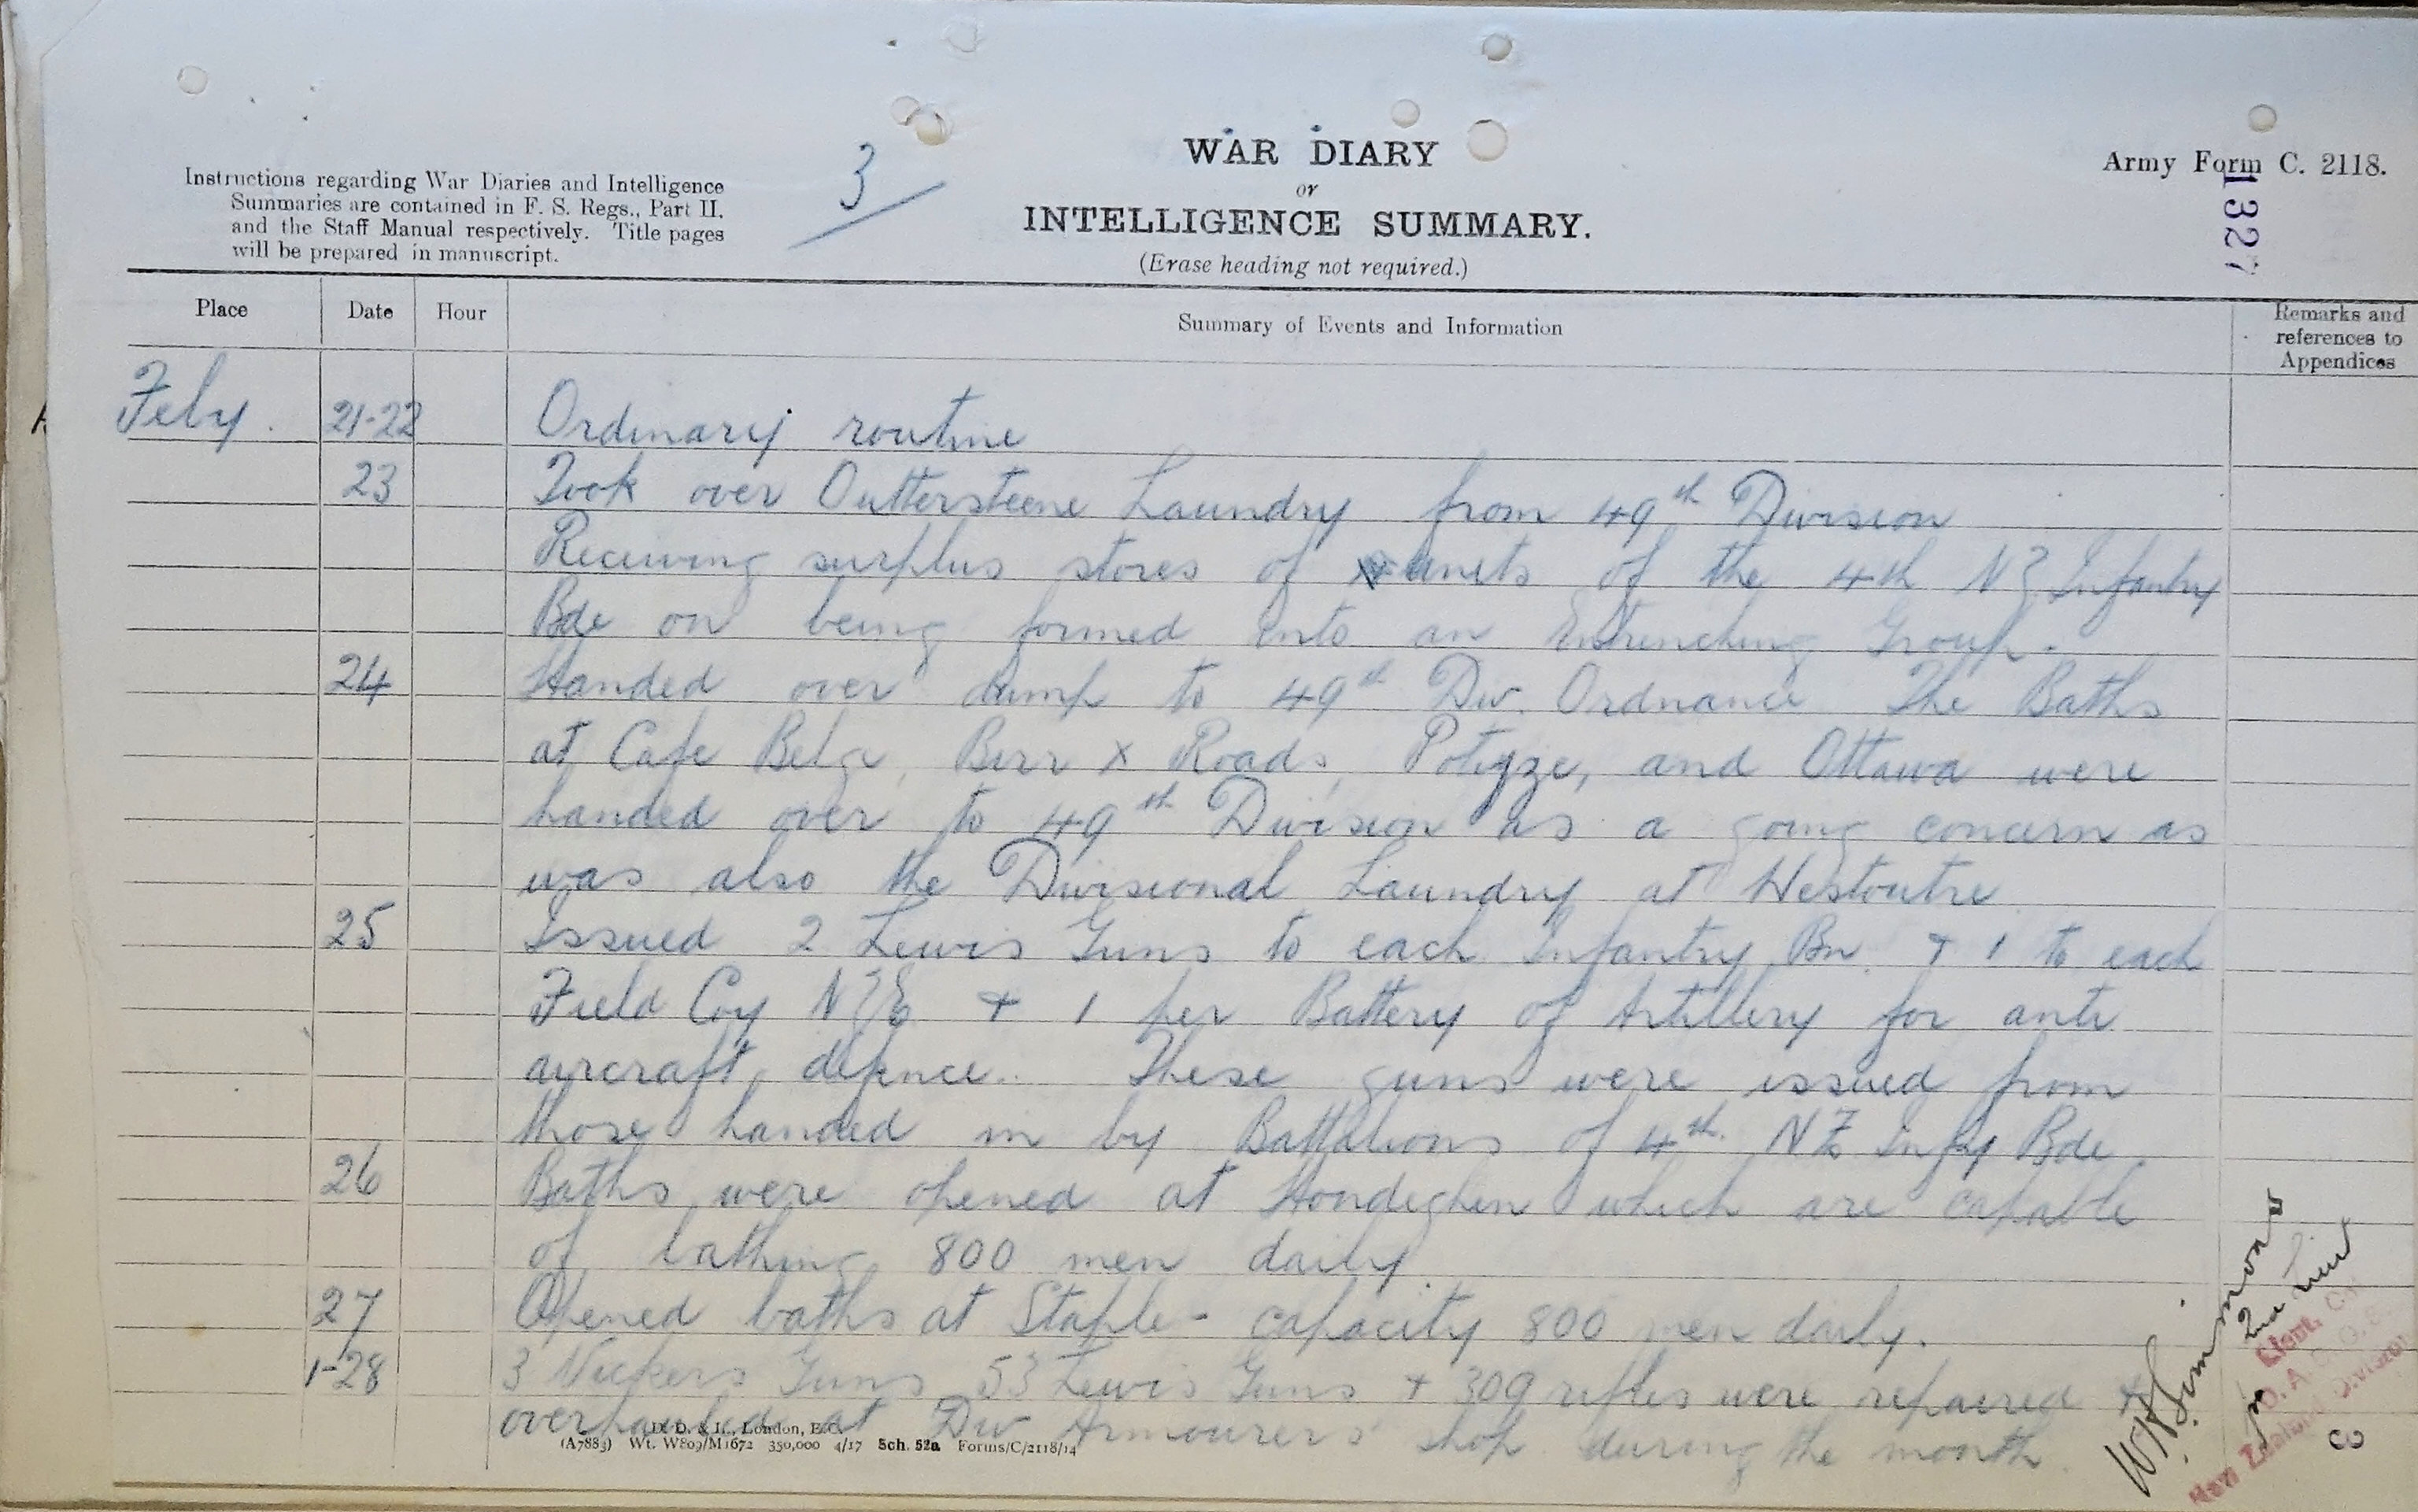 3
WAR DIARY
or
INTELLIGENCE SUMMARY.
(Erase heading not required.)
Army Form C. 2118.
1327
Instructions regarding War Diaries and Intelligence
Summaries are contained in F. S. Regs., Part II.
and the Staff Manual respectively. Title pages
will be prepared in manuscript.
Place Date Hour Summary of Events and Information Remarks and
references to
Appendices
Feby. 21-22 Ordinary routine
23 Took over Outtersteene Laundry from 49th Division
Receiving surplus stores of units of the 4th NZ Infantry
Bde on being formed into an Entrenching Group.
24 Handed over dump to 49th Div. Ordnance The Baths
at Cafe Belge, Birr X Roads, Potyze, and Ottawa were
handed over to 49th Division as a going concern as
was also the Divisional Laundry at Westoutre
25 Issued 2 Lewis Guns to each Infantry Bn. + 1 to each
Field Coy NZE + 1 per Battery of Artillery for anti
aircraft defence. These guns were issued from
those handed in by Battalions of 4th. NZ Infy Bde.
26 Baths were opened at Hondeghem which are capable
of bathing 800 men daily.
27 Opened baths at Staple - capacity 800 men daily.
1-28 3 Vickers Guns 53 Lewis Guns + 309 rifles were repaired +
overhauled at Div Armourers shop during the month.
D. D. & L., London, E.C.
(A7883) Wt. W809/M1672 350,000 4/17 Sch. 52a Forms/C/2118/14
2nd Lieut
New Zealand Division
3